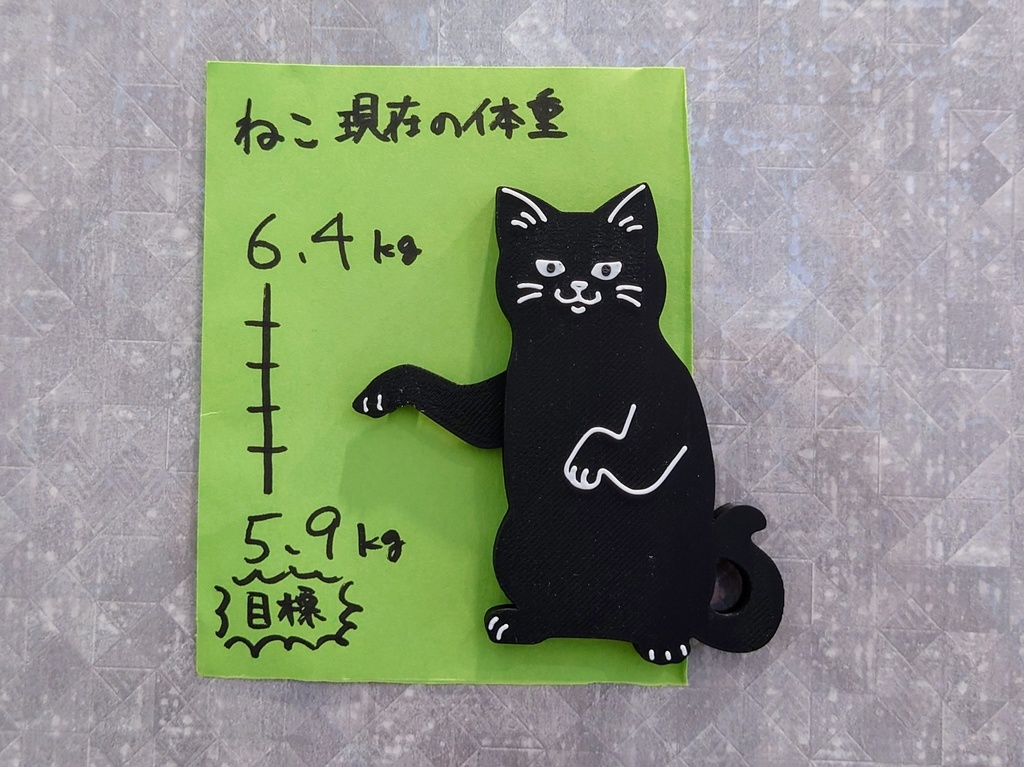 ねこ 現在の体重
6.4kg
5.9kg
目標